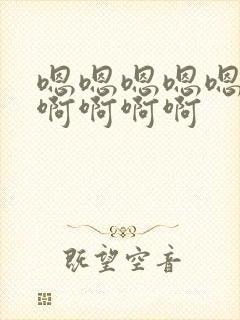 嗯嗯嗯嗯嗯
啊啊啊啊
既望空音